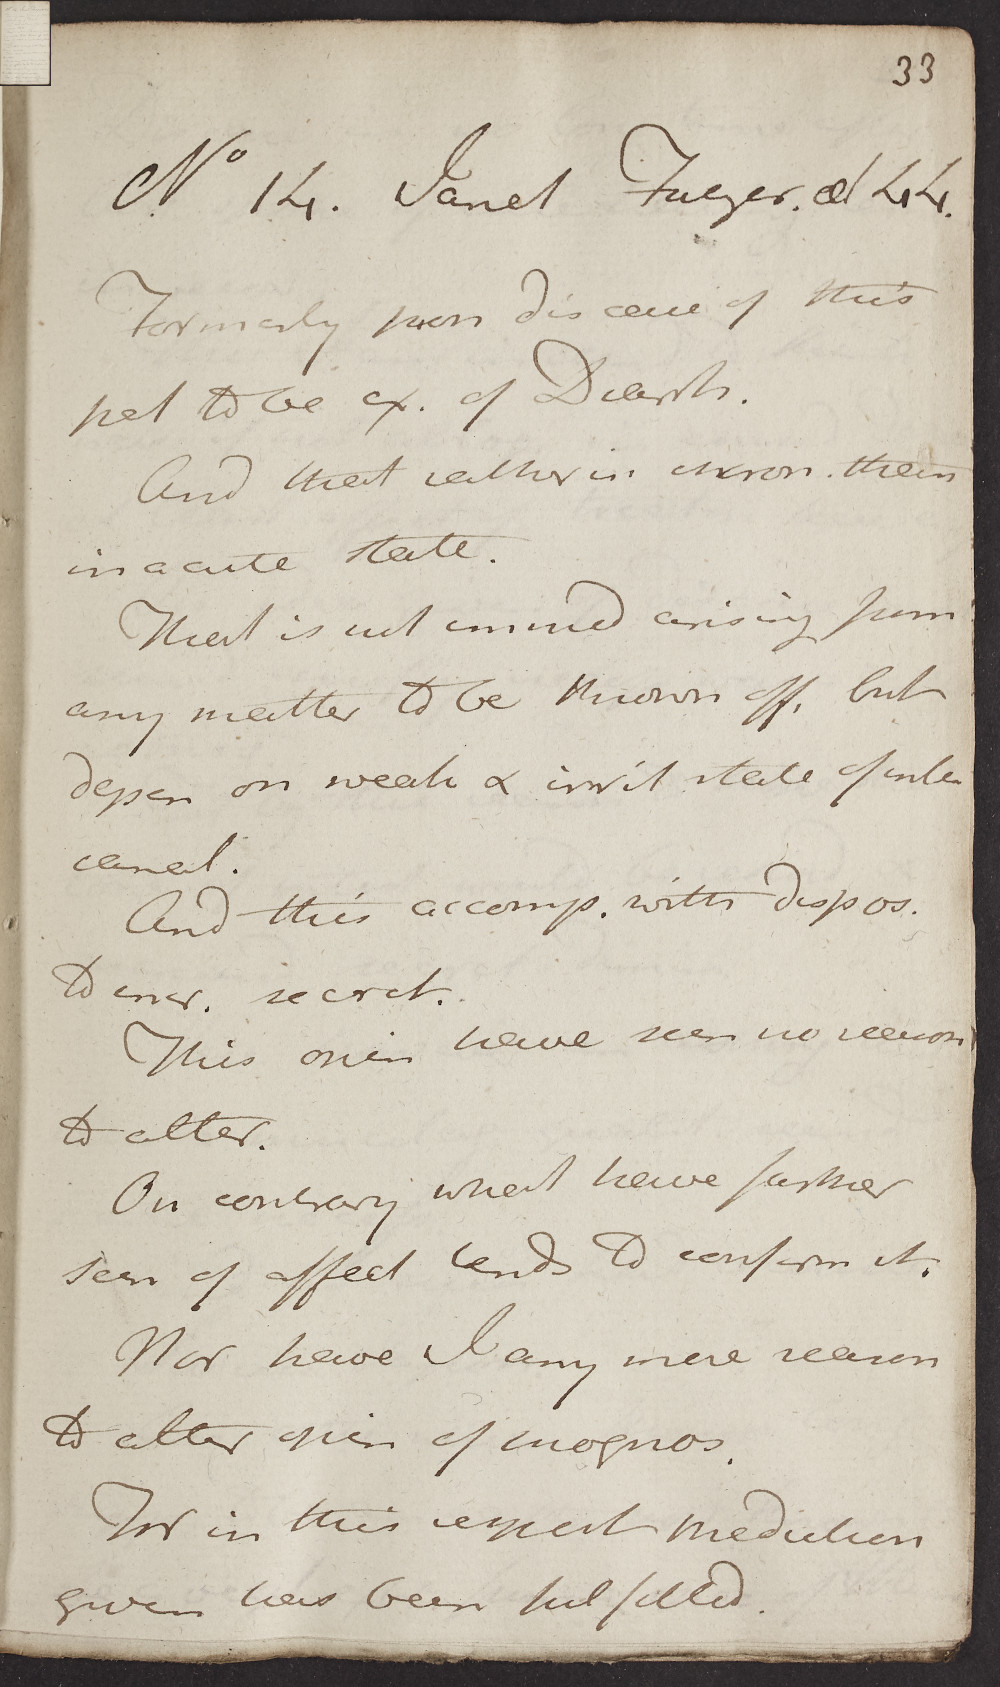 33
No 14. Janet Fuezer. æt 44.
Formerly pron disease of this
pat to be ex. of Diarrh.
And that rather in chron. than
in acute state.
That is not immed arising from
any matter to be thrown off, but
depen on weak & irrit state of intes
canal.
And this accomp. with dispos.
to incr. secret.
This opin have seen no reason
to alter.
On contrary what have farther
seen of affect tends to confirm it.
Nor have I any more reason
to alter opin of prognos.
For in this respect prediction
given has been fulfilled.